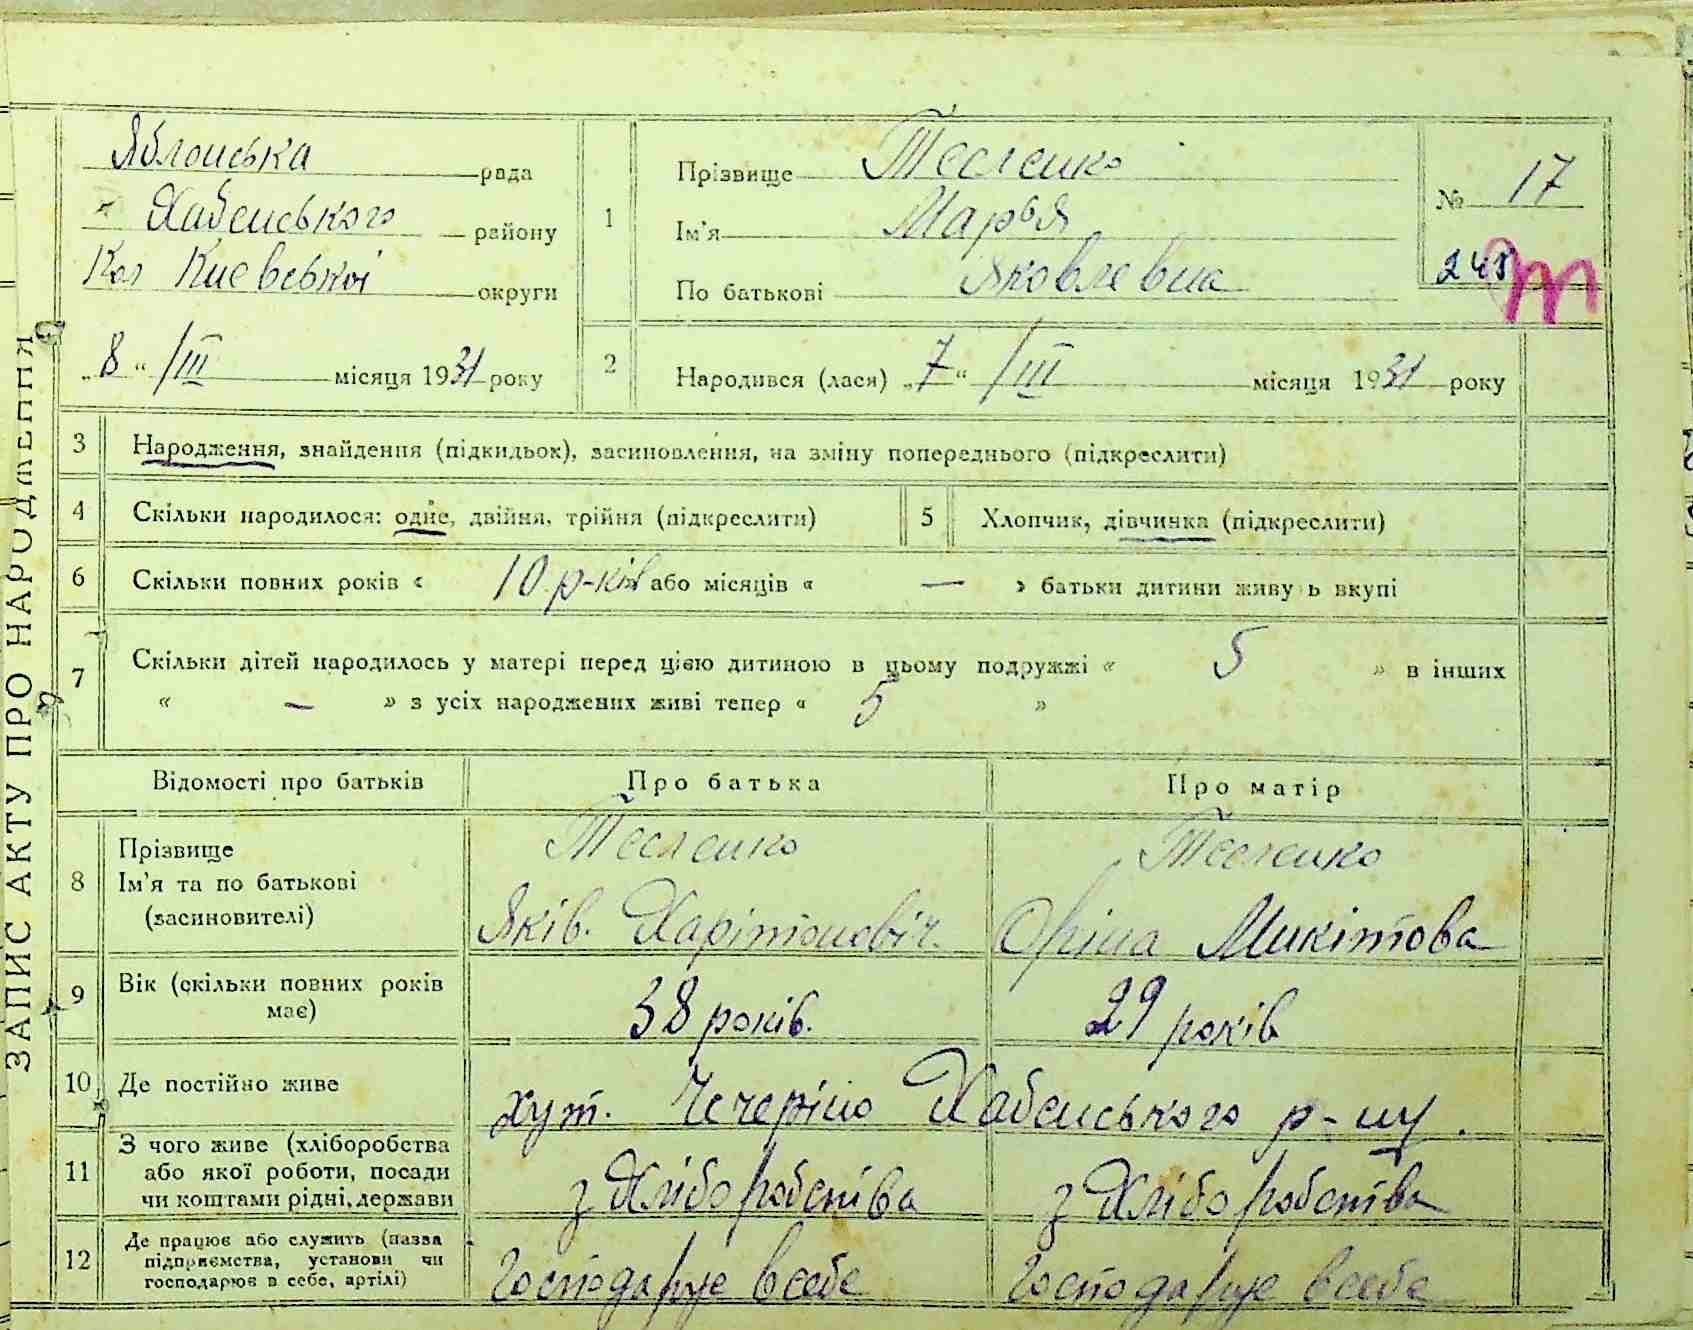 ЗАПИС АКТУ ПРО НАРОДЖЕННЯ
Яблонська рада
Хабенського району
Кол Киевської округи
„8“ /III місяця 1931 року
1
Прізвище Тесленко
Ім'я Марья
По батькові Яковлевна
№ 17
248
2
Народився (лася) „7“ /III місяця 1931 року
3 Народження, знайдення (підкидьок), засиновлення, на зміну попереднього (підкреслити)
4 Скільки народилося: одне, двійня, трійня (підкреслити)
5 Хлопчик, дівчинка (підкреслити)
6 Скільки повних років « 10 р-ків або місяців « — » батьки дитини живуть вкупі
7 Скільки дітей народилось у матері перед цією дитиною в цьому подружжі « 5 » в інших
« — » з усіх народжених живі тепер « 5 »
Відомості про батьків Про батька Про матір
8
Прізвище
Ім'я та по батькові
(засиновителі)
Тесленко
Яків. Харітоновіч.
Тесленко
Оріна Микітова
9
Вік (скільки повних років
має)
38 років.
29 років
10 Де постійно живе
хут. Чечеріно Хабенського р-ну.
11
З чого живе (хліборобства
або якої роботи, посади
чи коштами рідні, держави
з Хліборобства
з Хліборобства
12
Де працює або служить (назва
підприємства, установи чи
господарює в себе, артілі)
Господарує в себе
Господарує в себе